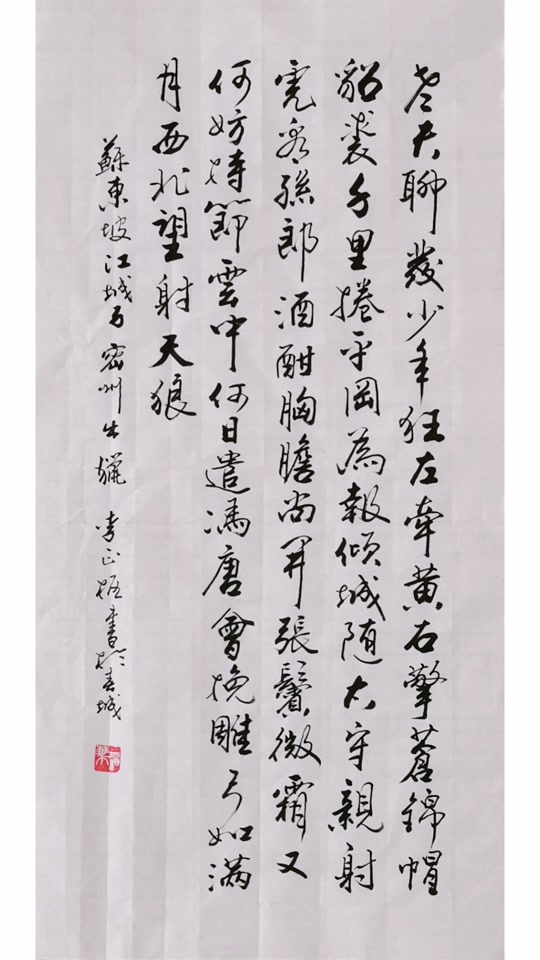 老夫聊發少年狂左牽黃右擎蒼錦帽
貂裘千里捲平岡為報傾城随太守親射
虎看孫郎酒酣胸膽尚開張鬢微霜又
何妨持節雲中何日遣馮唐會挽雕弓如滿
月西北望射天狼
蘇東坡江城子密州出獵 李正書於春城